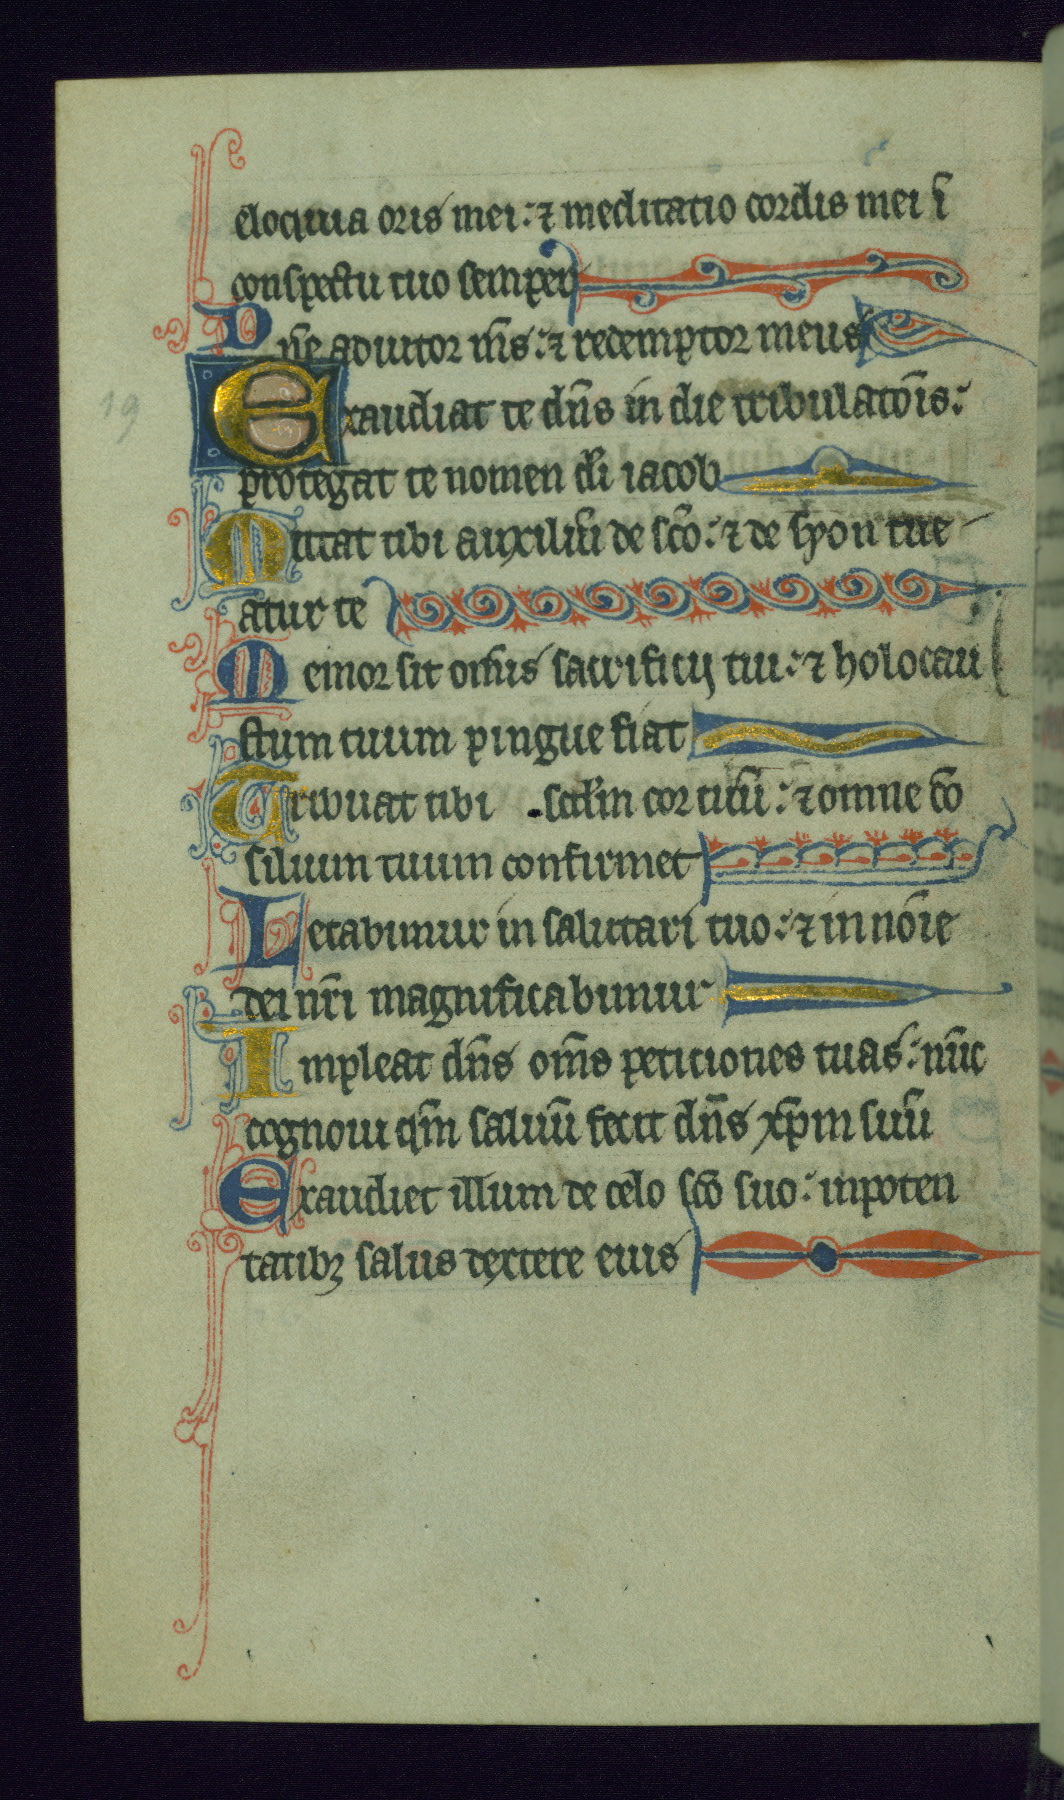 eloquia oris mei: ⁊ meditatio cordis mei ī
conspectu tuo semper
Dn̄e adiutor m̄s: ⁊ redemptor meus
19
Exaudiat te dn̄s in die tribulatōis:
protegat te nomen dei iacob
Mittat tibi auxiliū de sc̄o: ⁊ de syon tue
atur te
Memor sit om̄is sacrificij tui: ⁊ holocau
stum tuum pingue fiat
Tribuat tibi scd̄m cor tuū: ⁊ omne cō
silium tuum confirmet
Letabimur in salutari tuo: ⁊ in nōīe
dei nr̄i magnificabimur
Impleat dn̄s om̄s peticiones tuas: nūc
cognoui qm̄ saluū fecit dn̄s xp̄m suū
Exaudiet illum de celo sc̄o suo: in poten
tatibꝫ salus dextere eius